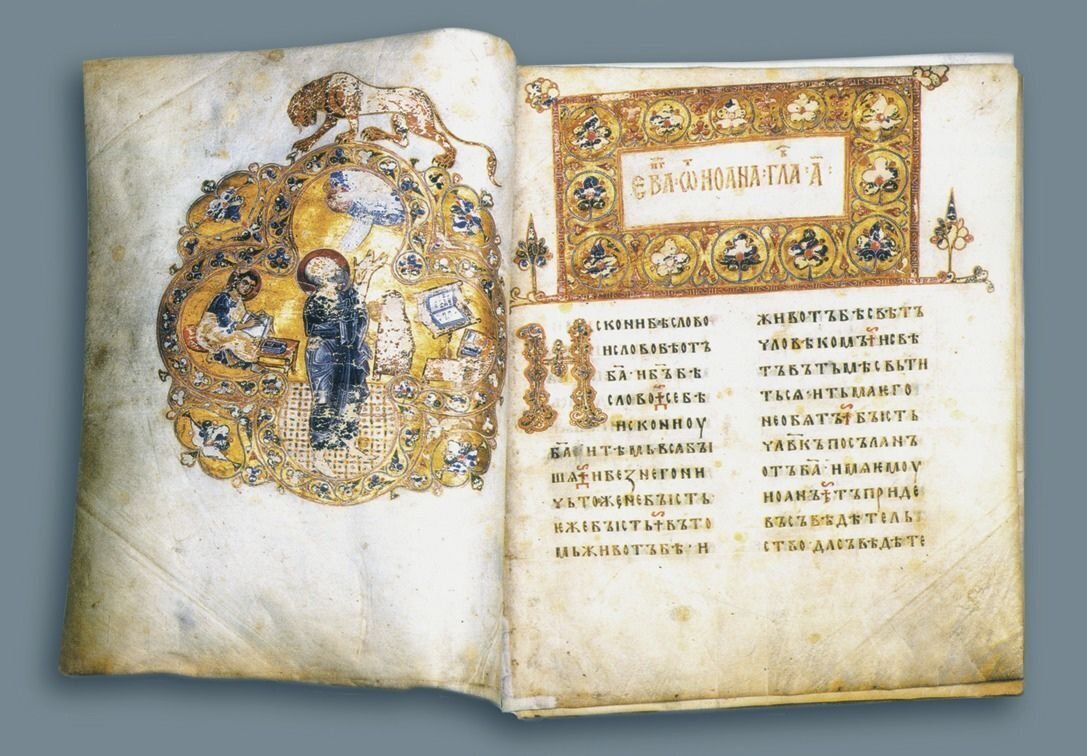 ЕВА҃ · Ѡ НОАНА · ГЛА · А҃ ·
Искони бѣ слово
и слово бѣ отъ
ба҃ и бъ҃ бѣ
слово се бѣ
искони оу
ба҃ и тѣмь вса бы
шѧ и без него ни
чьтоже не бысть
еже бысть въ то
мь животъ бѣ · и
животъ бѣ свѣтъ
чловѣкомъ и свѣ
тъ въ тьмѣ свьти
ться и тьма его
не обятъ бысть
чл҃вкъ посъланъ
отъ ба҃ · имя емоу
иоанъ тъ приде
въ съвѣдѣтельс
ство · да съвѣдѣте